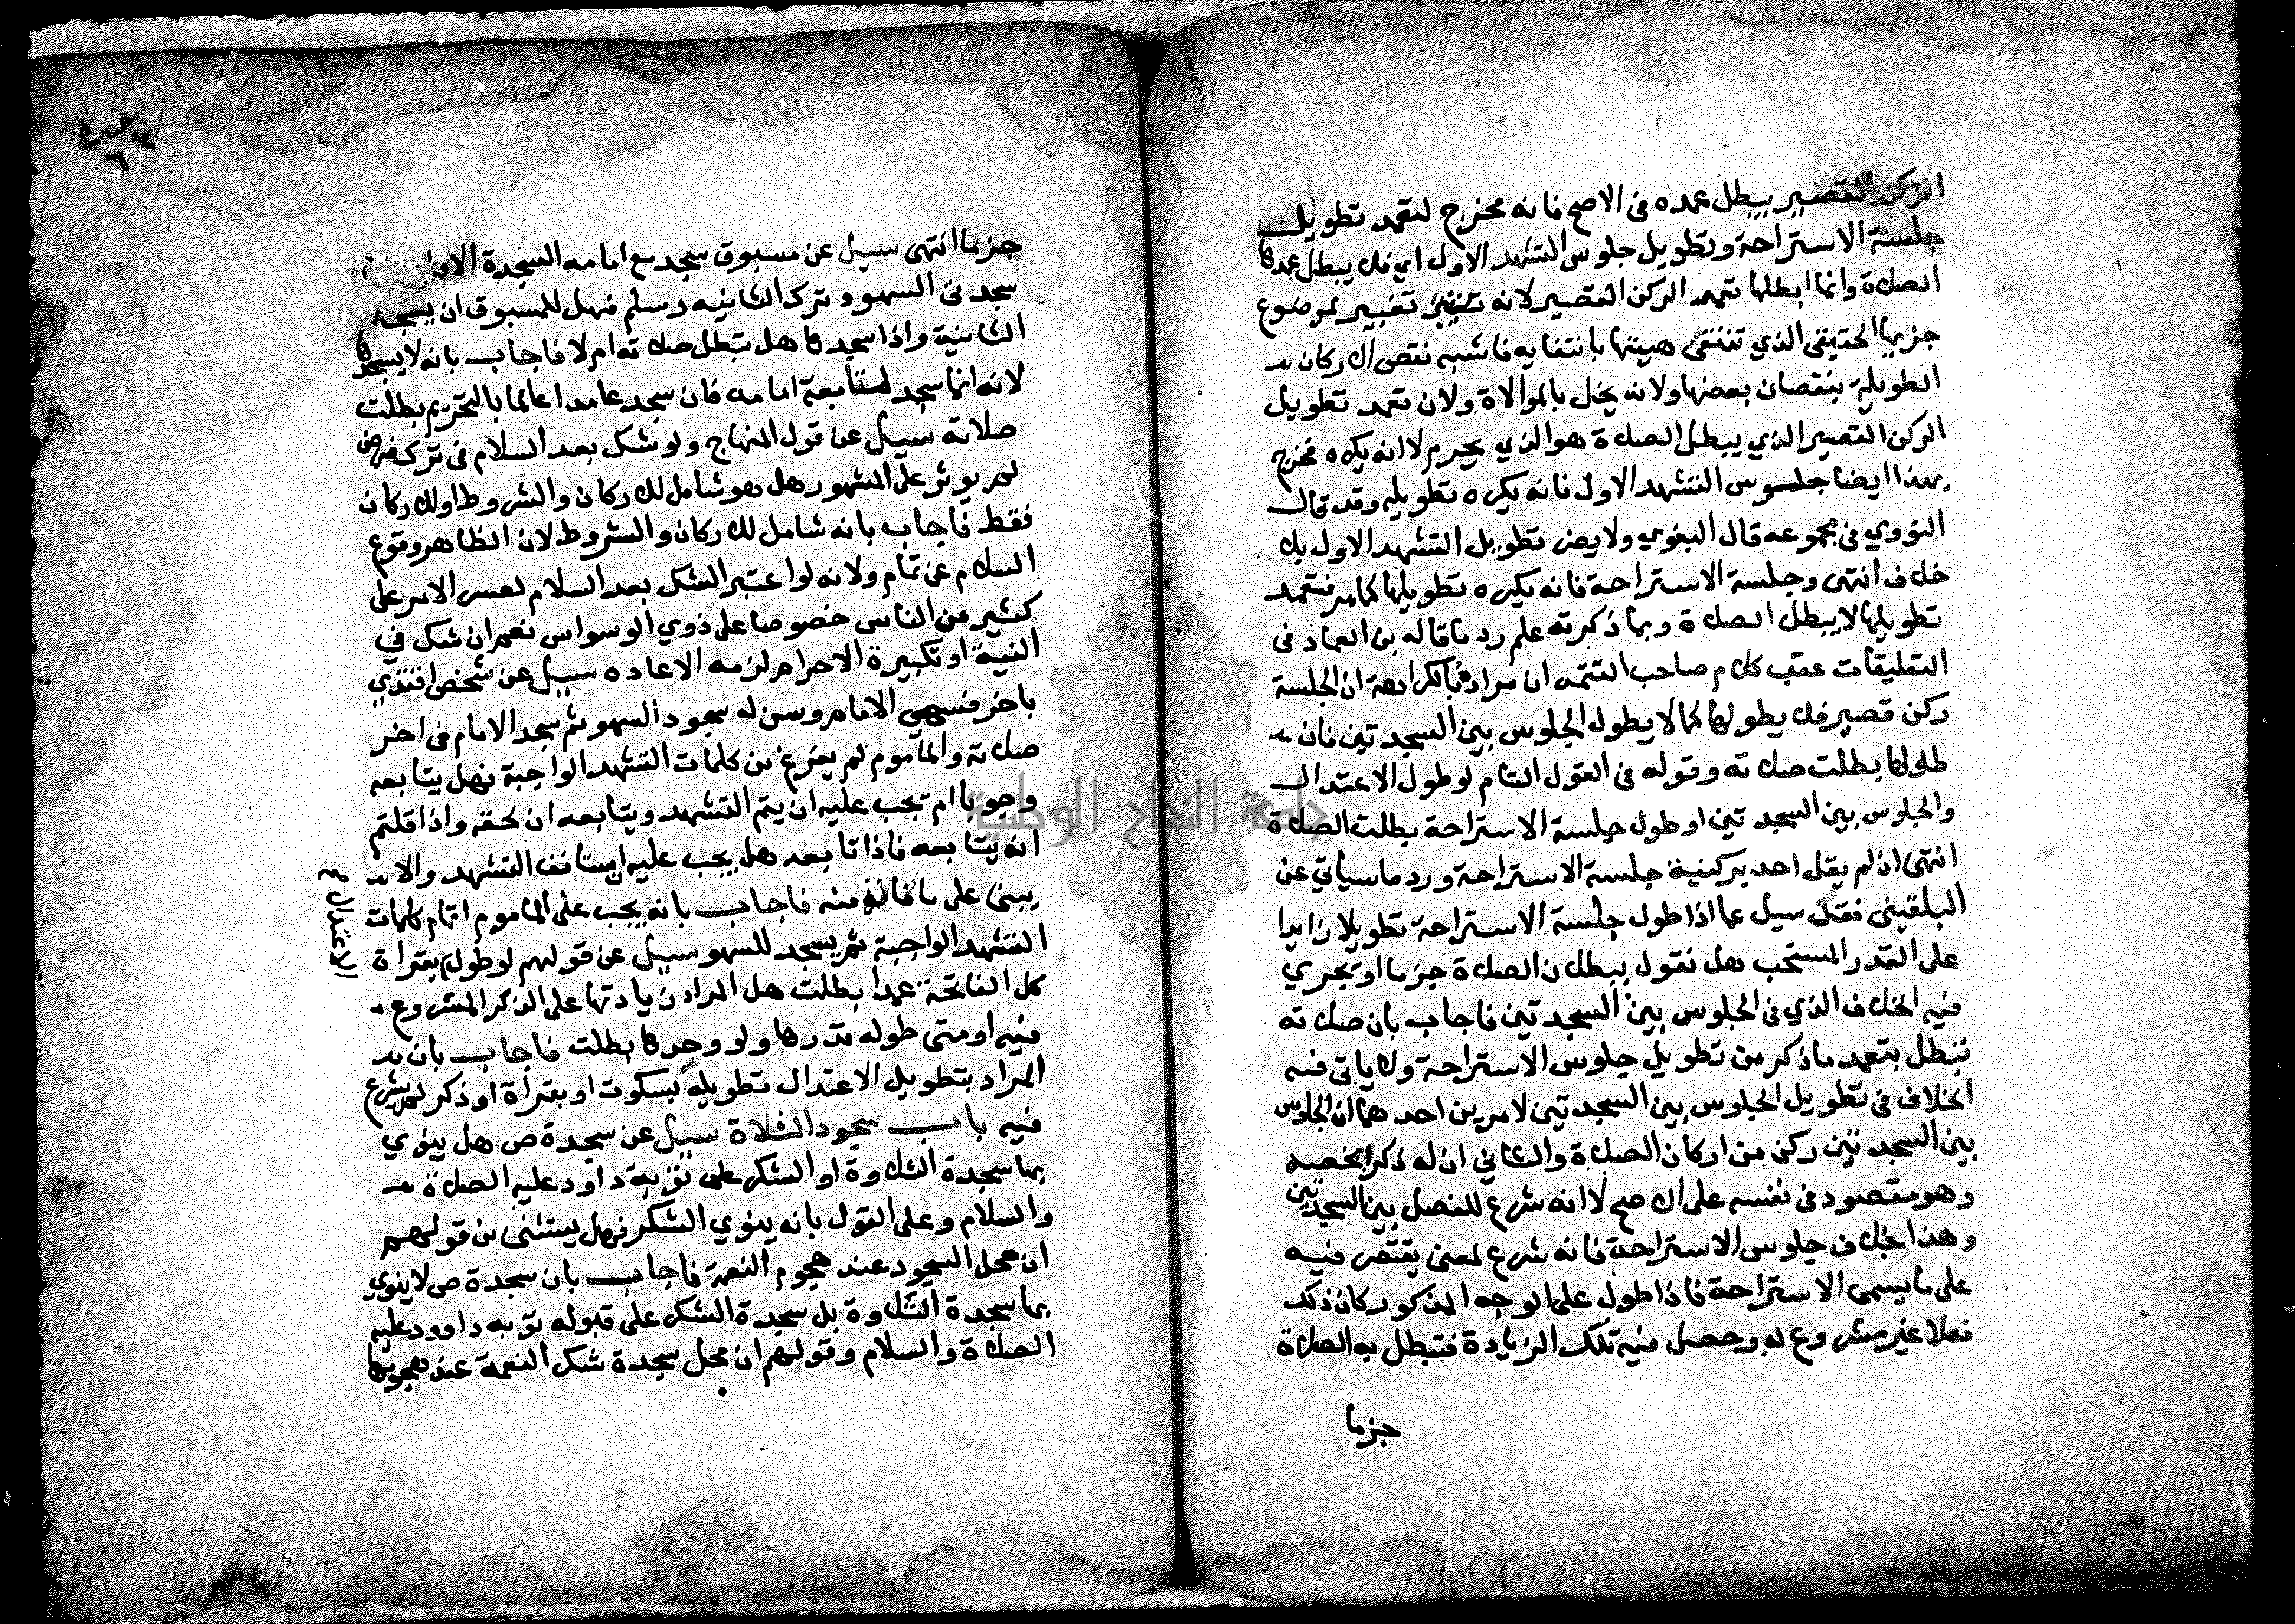 الركن القصير يبطل عمده في الاصح فانه مخرج لتعمد تطويل
جلسة الاستراحة وتطويل جلوس التشهد الاول اي فلا يبطل عمدها
الصلاة وانما ابطلها تعمد الركن القصير لانه تغيير لموضوع
جزيها الحقيقي الذي تنتفي هيئتها بانتفايه فاشبه نقص الاركان
الطويلة بنقصان بعضها ولانه يخل بالموالاة ولان تعمد تطويل
الركن القصير الذي يبطل الصلاة هو الذي يحرم لا انه يكره فخرج
بهذا ايضا جلوس التشهد الاول فانه يكره تطويله وقد قال
النووي في مجموعه قال البغوي ولا يضر تطويل التشهد الاول بلا
خلاف انتهى وجلسة الاستراحة فانه يكره تطويلها كما مر فتعمد
تطويلها لا يبطل الصلاة وبما ذكرته علم رد ما قاله بن العماد في
التعليقات عقب كلام صاحب التتمه ان مراده بالكراهة ان الجلسة
ركن قصير فلا يطولها كما لا يطول الجلوس بين السجدتين فان
طولها بطلت صلاته وقوله في القول التام لو طول الاعتدال
والجلوس بين السجدتين او طول جلسة الاستراحة بطلت الصلاة
انتهى اذ لم يقل احد بركنية جلسة الاستراحة ورد ما سياتي عن
البلقيني فقد سيل عما اذا طول جلسة الاستراحة تطويلا زايدا
على القدر المستحب هل نقول ببطلان الصلاة جزما او يجري
فيه الخلاف الذي في الجلوس بين السجدتين فاجاب بان صلاته
تبطل بتعمد ما ذكر من تطويل جلوس الاستراحة ولا ياتي فيه
الخلاف في تطويل الجلوس بين السجدتين لامرين احدهما ان الجلوس
بين السجدتين ركن من اركان الصلاة والثاني ان له ذكرا يخصه
وهو مقصود في نفسه على الاصح لا انه شرع للفصل بين السجدتين
وهذا بخلاف جلوس الاستراحة فانه شرع لمعنى يقتصر فيه
على ما يسمى الاستراحة فاذا طول على الوجه المذكور كان ذلك
فعلا غير مشروع له وحصل فيه تلك الزيادة فتبطل به الصلاة
جزما
عده
٦
جزما انتهى سيل عن مسبوق سجد مع امامه السجدة الاولى
سجد في السهو وترك الثانيه وسلم فهل للمسبوق ان يسجد
الثانية واذا سجدها هل تبطل صلاته ام لا فاجاب بانه لا يسجدها
لانه انما سجد لمتابعة امامه فان سجد عامدا عالما بالتحريم بطلت
صلاته سيل عن قول المنهاج ولو شك بعد السلام في ترك فرض
لم يوثر على المشهور هل هو شامل للاركان والشروط او للاركان
فقط فاجاب بانه شامل للاركان والشروط لان الظاهر وقوع
السلام عن تمام ولانه لو اعتبر الشك بعد السلام لعسر الامر على
كثير من الناس خصوصا على ذوي الوسواس نعم ان شك في
النية او تكبيرة الاحرام لزمه الاعاده سيل عن شخص اقتدي
باخر فسهي الامام وسن له سجود السهو ثم سجد الامام في اخر
صلاته والماموم لم يفرغ من كلمات التشهد الواجبة فهل يتابعه
وجوبا ام يجب عليه ان يتم التشهد ويتابعه ان لحقه واذا قلتم
انه يتابعه فاذا تابعه هل يجب عليه استانف التشهد والا
يبني على ما قاله منه فاجاب بانه يجب على الماموم اتمام كلمات
التشهد الواجبة ثم يسجد للسهو سيل عن قولهم لو طول بقراة
الاعتدال
كل الفاتحة عمدا بطلت هل المراد زيادتها على الذكر المشروع
فيه او متى طوله بقدرها ولو وحدها بطلت فاجاب بان
المراد بتطويل الاعتدال تطويله بسكوت او بقراة او ذكر لم يشرع
فيه باب سجود التلاوة سيل عن سجدة ص هل ينوي
بها سجدة التلاوة او الشكر على توبة داود عليه الصلاة
والسلام وعلى القول بانه ينوي الشكر فهل يستثنى من قولهم
ان محل السجود عند هجوم النعمة فاجاب بان سجدة ص لا ينوي
بها سجدة التلاوة بل سجدة الشكر على قبوله توبه داوود عليه
الصلاة والسلام وقولهم ان محل سجدة شكر النعمة عند هجومها
جامعة النجاح الوطنية